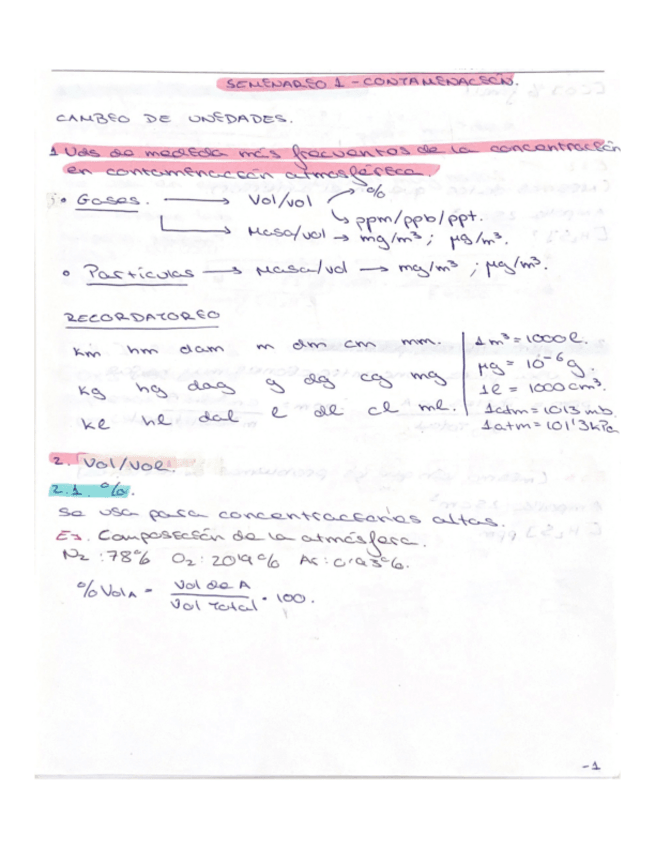 SEMINARIO 1 - CONTAMINACIÓN.
CAMBIO DE UNIDADES.
1 Uds de medida más frecuentes de la concentración
en contaminación atmosférica.
• Gases. → Vol/vol → %
↳ ppm/ppb/ppt.
→ Masa/vol → mg/m³ ; µg/m³.
• Partículas → Masa/vol → mg/m³ ; µg/m³.
RECORDATORIO
km hm dam m dm cm mm.
kg hg dag g dg cg mg
kl hl dal l dl cl ml.
1 m³ = 1000 l.
µg = 10⁻⁶ g.
1l = 1000 cm³.
1atm = 1013 mb.
1atm = 101'3 kPa
2. Vol/vol.
2.1. %.
Se usa para concentraciones altas.
Ej. Composición de la atmósfera.
N₂ : 78% O₂ : 20'9% Ar : 0'93%.
% Vol A = Vol de A / Vol total · 100.
-1